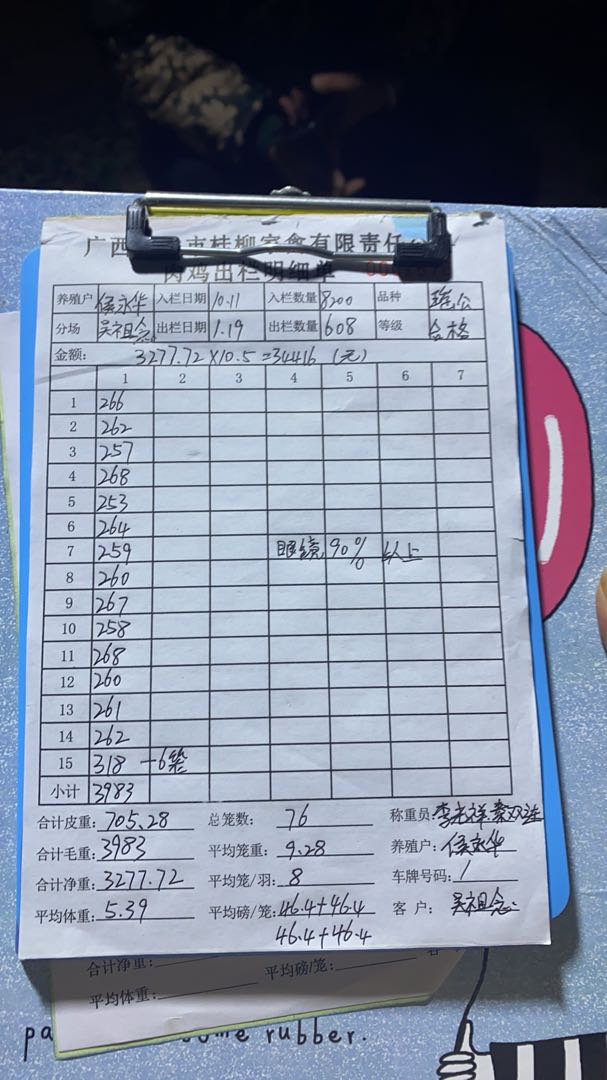 广西 市桂柳家禽有限责任
肉鸡出栏明细单
养殖户 侯永华 入栏日期 10.11 入栏数量 8200 品种
分场 吴祖念 出栏日期 1.19 出栏数量 608 等级 合格
金额: 3277.72×10.5=34416 (元)
1 2 3 4 5 6 7
1 266
2 262
3 257
4 268
5 253
6 264
7 259 90% 以上
8 260
9 267
10 258
11 268
12 260
13 261
14 262
15 318 —6笼
小计 3983
合计皮重: 705.28 总笼数: 76 称重员:
合计毛重: 3983 平均笼重: 9.28 养殖户: 侯永华
合计净重: 3277.72 平均笼/羽: 8 车牌号码: 1
平均体重: 5.39 平均磅/笼: 46.4+46.4 客 户: 吴祖念
46.4+46.4
合计净重:
平均磅/笼:
平均体重:
pa me rubber.